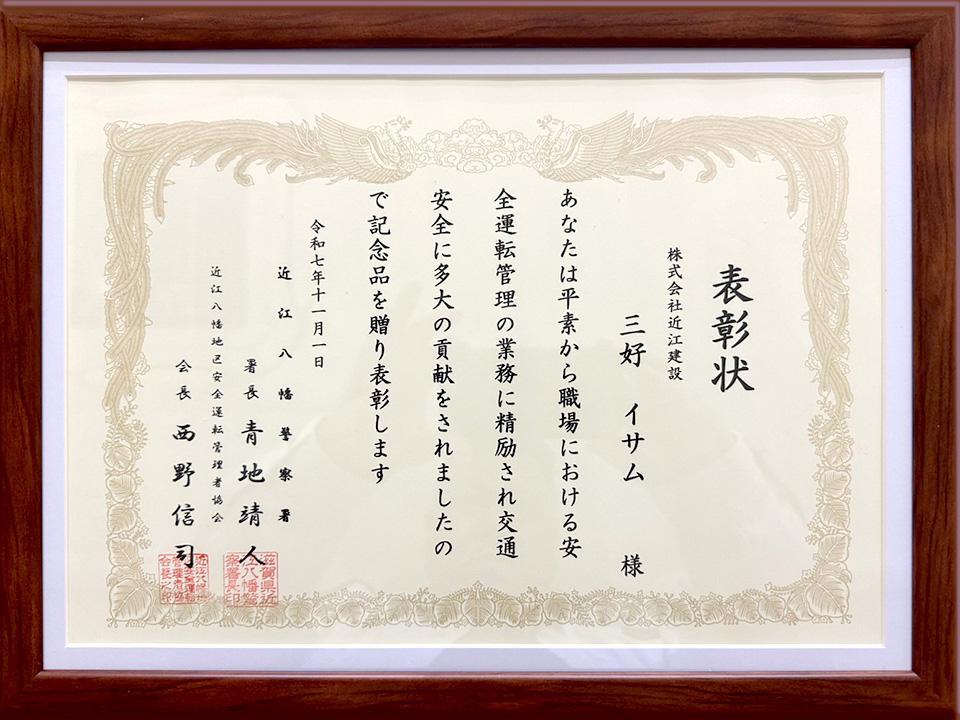 表彰状
株式会社近江建設
三好 イサム 様
あなたは平素から職場における安
全運転管理の業務に精励され交通
安全に多大の貢献をされましたの
で記念品を贈り表彰します
令和七年十一月一日
近江八幡警察署
署長 青地靖人
近江八幡地区安全運転管理者協会
会長 西野信司
滋賀県近
江八幡警
察署長印